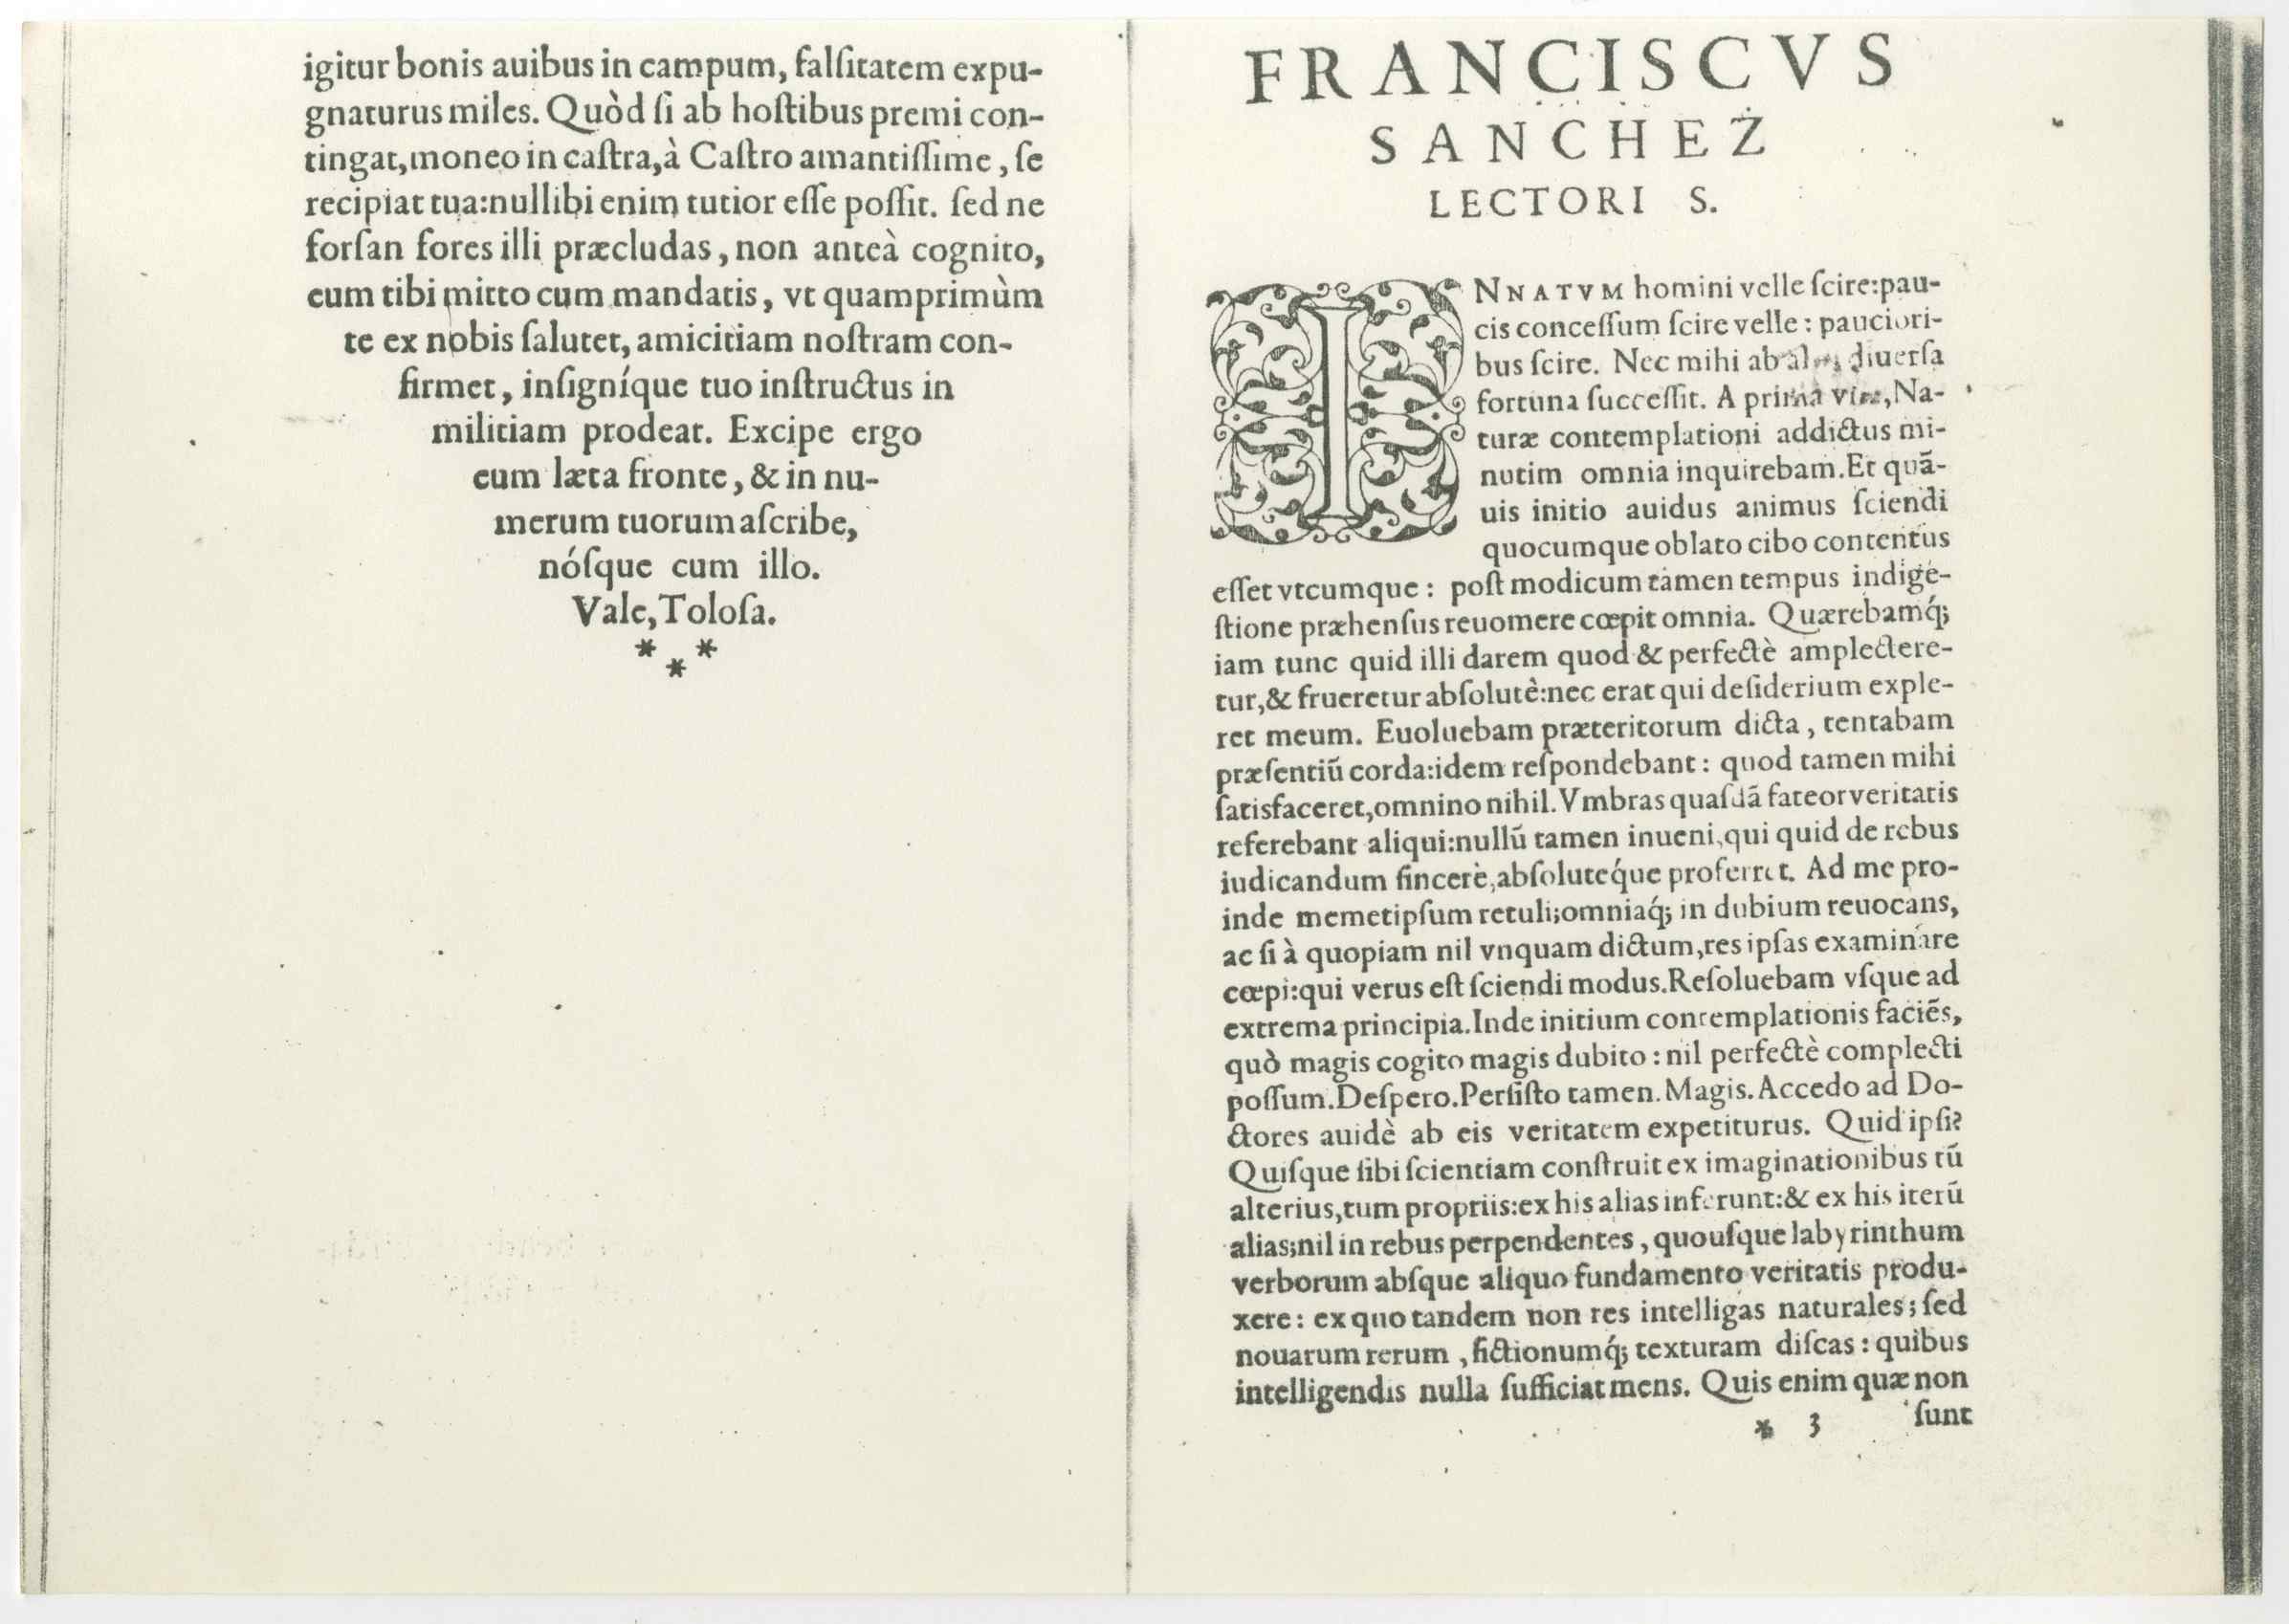 igitur bonis auibus in campum, falſitatem expu-
gnaturus miles. Quòd ſi ab hoſtibus premi con-
tingat, moneo in caſtra, à Caſtro amantiſſime, ſe
recipiat tua: nullibi enim tutior eſſe poſſit. ſed ne
forſan fores illi præcludas, non anteà cognito,
eum tibi mitto cum mandatis, vt quamprimùm
te ex nobis ſalutet, amicitiam noſtram con-
firmet, inſigníque tuo inſtructus in
militiam prodeat. Excipe ergo
eum læta fronte, & in nu-
merum tuorum aſcribe,
nóſque cum illo.
Vale, Toloſa.
* * *
FRANCISCVS
SANCHEZ
LECTORI S.
INNATVM homini velle ſcire: pau-
cis conceſſum ſcire velle: pauciori-
bus ſcire. Nec mihi ab diuerſa
fortuna ſucceſſit. A prima, Na-
turæ contemplationi addictus mi-
nutim omnia inquirebam. Et quā-
uis initio auidus animus ſciendi
quocumque oblato cibo contentus
eſſet vtcumque: poſt modicum tamen tempus indige-
ſtione præhenſus reuomere cœpit omnia. Quærebamq́;
iam tunc quid illi darem quod & perfectè amplectere-
tur, & frueretur abſolutè: nec erat qui deſiderium exple-
ret meum. Euoluebam præteritorum dicta, tentabam
præſentiū corda: idem reſpondebant: quod tamen mihi
ſatisfaceret, omnino nihil. Vmbras quaſdā fateor veritatis
referebant aliqui: nullū tamen inueni, qui quid de rebus
iudicandum ſincerè, abſolutéque proferret. Ad me pro-
inde memetipſum retuli; omniaq́; in dubium reuocans,
ac ſi à quopiam nil vnquam dictum, res ipſas examinare
cœpi: qui verus eſt ſciendi modus. Reſoluebam vſque ad
extrema principia. Inde initium contemplationis faciēs,
quò magis cogito magis dubito: nil perfectè complecti
poſſum. Deſpero. Perſiſto tamen. Magis. Accedo ad Do-
ctores auidè ab eis veritatem expetiturus. Quid ipſi?
Quiſque ſibi ſcientiam conſtruit ex imaginationibus tū
alterius, tum propriis: ex his alias inferunt: & ex his iterū
alias; nil in rebus perpendentes, quouſque labyrinthum
verborum abſque aliquo fundamento veritatis produ-
xere: ex quo tandem non res intelligas naturales; ſed
nouarum rerum, fictionumq́; texturam diſcas: quibus
intelligendis nulla ſufficiat mens. Quis enim quæ non
* 3 ſunt